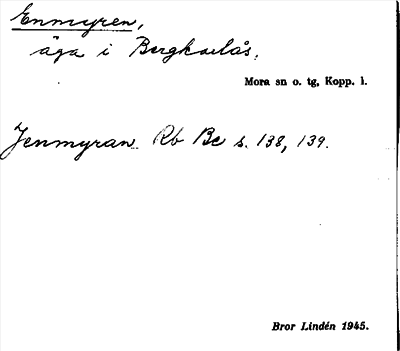 Enmyren,
äga i Bergkarlås.
Mora sn o. tg, Kopp. l.
Jenmyran. Rb Bc s. 138, 139.
Bror Lindén 1945.